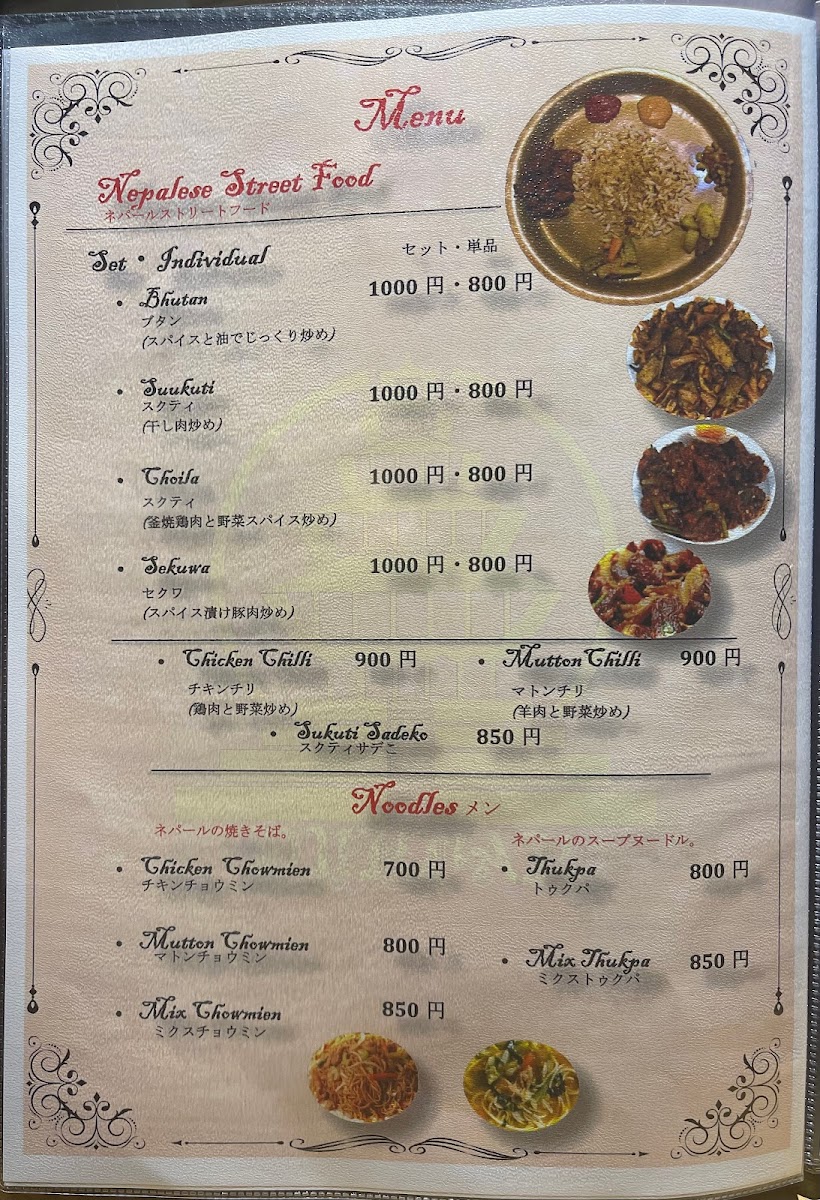 Menu
Nepalese Street Food
ネパールストリートフード
Set・Individual
セット・単品
Bhutan 1000 円・800 円
ブタン
(スパイスと油でじっくり炒め)
Suukuti 1000 円・800 円
スクティ
(干し肉炒め)
Choila 1000 円・800 円
スクティ
(釜焼鶏肉と野菜スパイス炒め)
Sekuwa 1000 円・800 円
セクワ
(スパイス漬け豚肉炒め)
Chicken Chilli 900 円
チキンチリ
(鶏肉と野菜炒め)
Mutton Chilli 900 円
マトンチリ
(羊肉と野菜炒め)
Sukuti Sadeko 850 円
スクティサデこ
Noodles メン
ネパールの焼きそば。
Chicken Chowmien 700 円
チキンチョウミン
Mutton Chowmien 800 円
マトンチョウミン
Mix Chowmien 850 円
ミクスチョウミン
ネパールのスープヌードル。
Thukpa 800 円
トゥクパ
Mix Thukpa 850 円
ミクストゥクパ